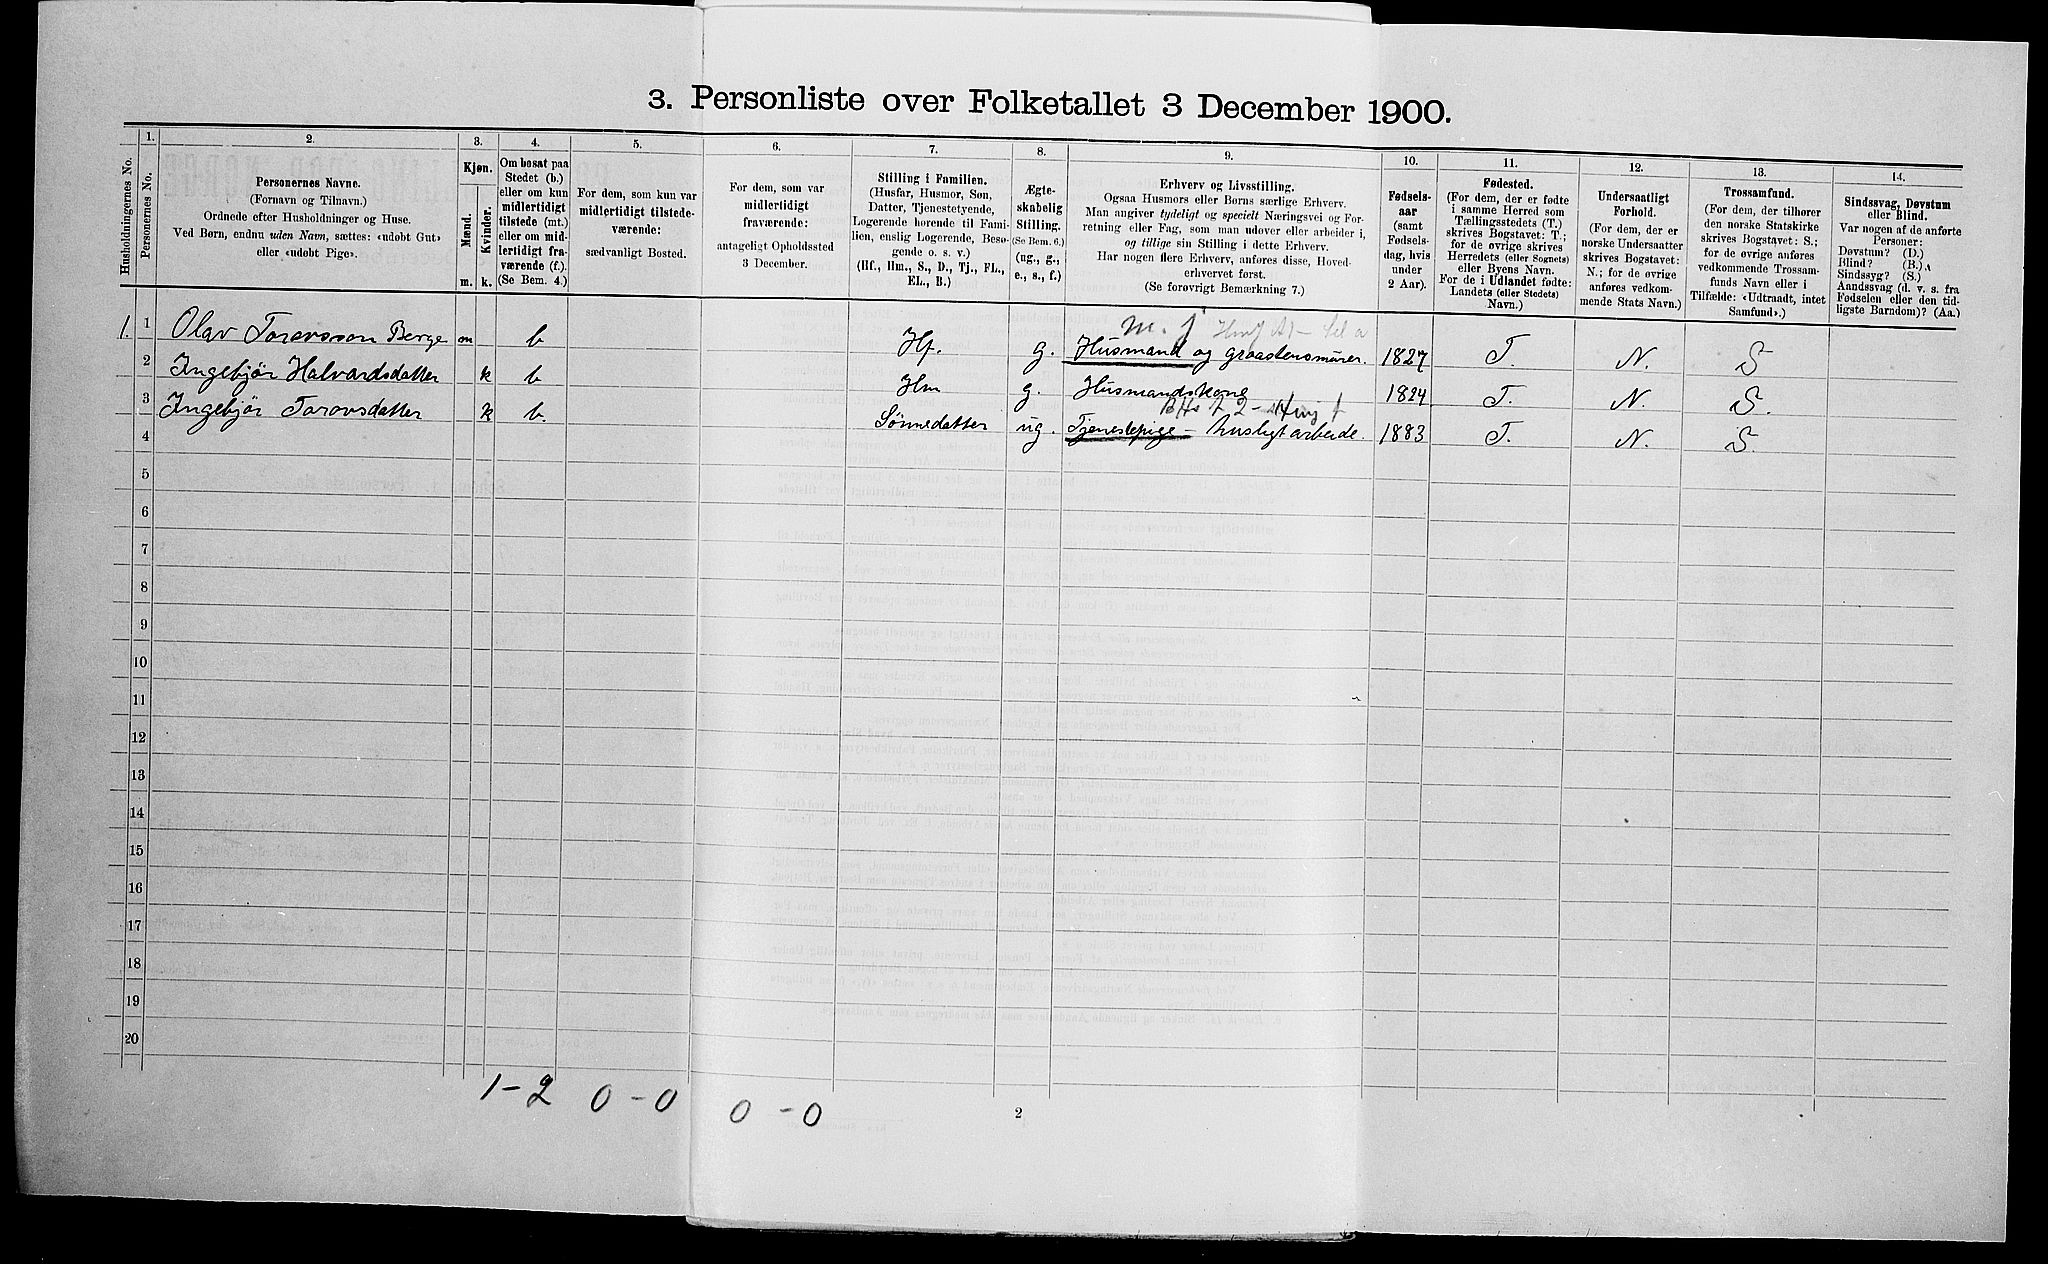 3. Personliste over Folketallet 3 December 1900.
1. 2. 3. 4. 5. 6. 7. 8. 9. 10. 11. 12. 13. 14.
Husholdningernes No.
Personernes No.
Personernes Navne.
(Fornavn og Tilnavn.)
Ordnede efter Husholdninger og Huse.
Ved Børn, endnu uden Navn, sættes: «udøbt Gut»
eller «udøbt Pige».
Kjøn.
Mænd.
Kvinder.
m. k.
Om bosat paa
Stedet (b.)
eller om kun
midlertidigt
tilstede (mt.)
eller om mid-
lertidigt fra-
værende (f.).
(Se Bem. 4.)
For dem, som kun var
midlertidigt tilstede-
værende:
sædvanligt Bosted.
For dem, som var
midlertidigt
fraværende:
antageligt Opholdssted
3 December.
Stilling i Familien.
(Husfar, Husmor, Søn,
Datter, Tjenestetyende,
Logerende hørende til Fami-
lien, enslig Logerende, Besø-
gende o. s. v.)
(Hf., Hm., S., D., Tj., FL.,
EL., B.)
Ægte-
skabelig
Stilling.
(Se Bem. 6.)
(ug., g.,
e., s., f.)
Erhverv og Livsstilling.
Ogsaa Husmors eller Børns særlige Erhverv.
Man angiver tydeligt og specielt Næringsvei og For-
retning eller Fag, som man udover eller arbeider i,
og tillige sin Stilling i dette Erhverv.
Har nogen flere Erhverv, anføres disse, Hoved-
erhvervet først.
(Se forøvrigt Bemærkning 7.)
Fødsels-
aar
(samt
Fødsels-
dag, hvis
under
2 Aar).
Fødested.
(For dem, der er fødte
i samme Herred som
Tællingsstedets (T.)
skrives Bogstavet: T.;
for de øvrige skrives
Herredets (eller Sognets)
eller Byens Navn.
For de i Udlandet fødte:
Landets (eller Stedets)
Navn.)
Undersaatligt
Forhold.
(For dem, der er
norske Undersaatter
skrives Bogstavet:
N.; for de øvrige
anføres vedkom-
mende Stats Navn.)
Trossamfund.
(For dem, der tilhører
den norske Statskirke
skrives Bogstavet: S.;
for de øvrige anføres
vedkommende Trossam-
funds Navn eller i
Tilfælde: «Udtraadt, intet
Samfund».)
Sindssvag, Døvstum
eller Blind.
Var nogen af de anførte
Personer:
Døvstum? (D.)
Blind? (B.)
Sindssyg? (S.)
Aandssvag (d. v. s. fra
Fødselen eller den tid-
ligste Barndom)? (Aa.)
m. f
1. 1 Olav Torovsson Berge m b Hf. g. Husmand og graastensmurer. 1827 T. N. S
2 Ingebjør Halvardsdatter k b Hm g. Husmandskone 1824 T. N. S.
3 Ingebjør Torovsdatter k b. Sønnedatter ug. Tjenestepige – husligt arbeide. 1883 T. N. S.
4
5
6
7
8
9
10
11
12
13
14
15
16
17
18
19
20
1 – 2 0 – 0 0 – 0
2